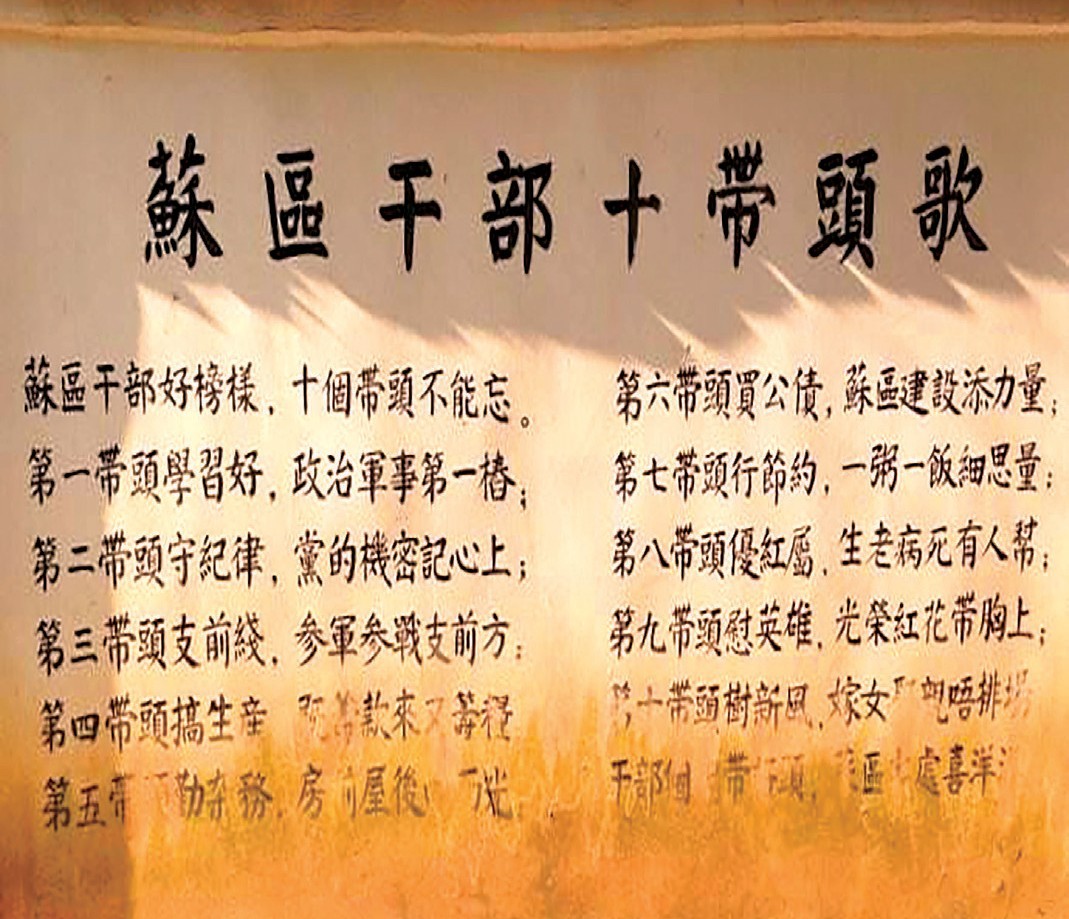 蘇區干部十帶頭歌
蘇區干部好榜樣，十個帶頭不能忘。
第一帶頭學習好，政治軍事第一樁；
第二帶頭守紀律，黨的機密記心上；
第三帶頭支前綫，參軍參戰支前方；
第四帶頭搞生產 款來又籌糧
第五帶 勤雜務，房前屋後 光
第六帶頭買公債，蘇區建設添力量；
第七帶頭行節約，一粥一飯細思量；
第八帶頭優紅屬，生老病死有人幫；
第九帶頭慰英雄，光榮紅花帶胸上；
第十帶頭樹新風，嫁女 親唔排場
干部個 帶 頭，區 處喜洋